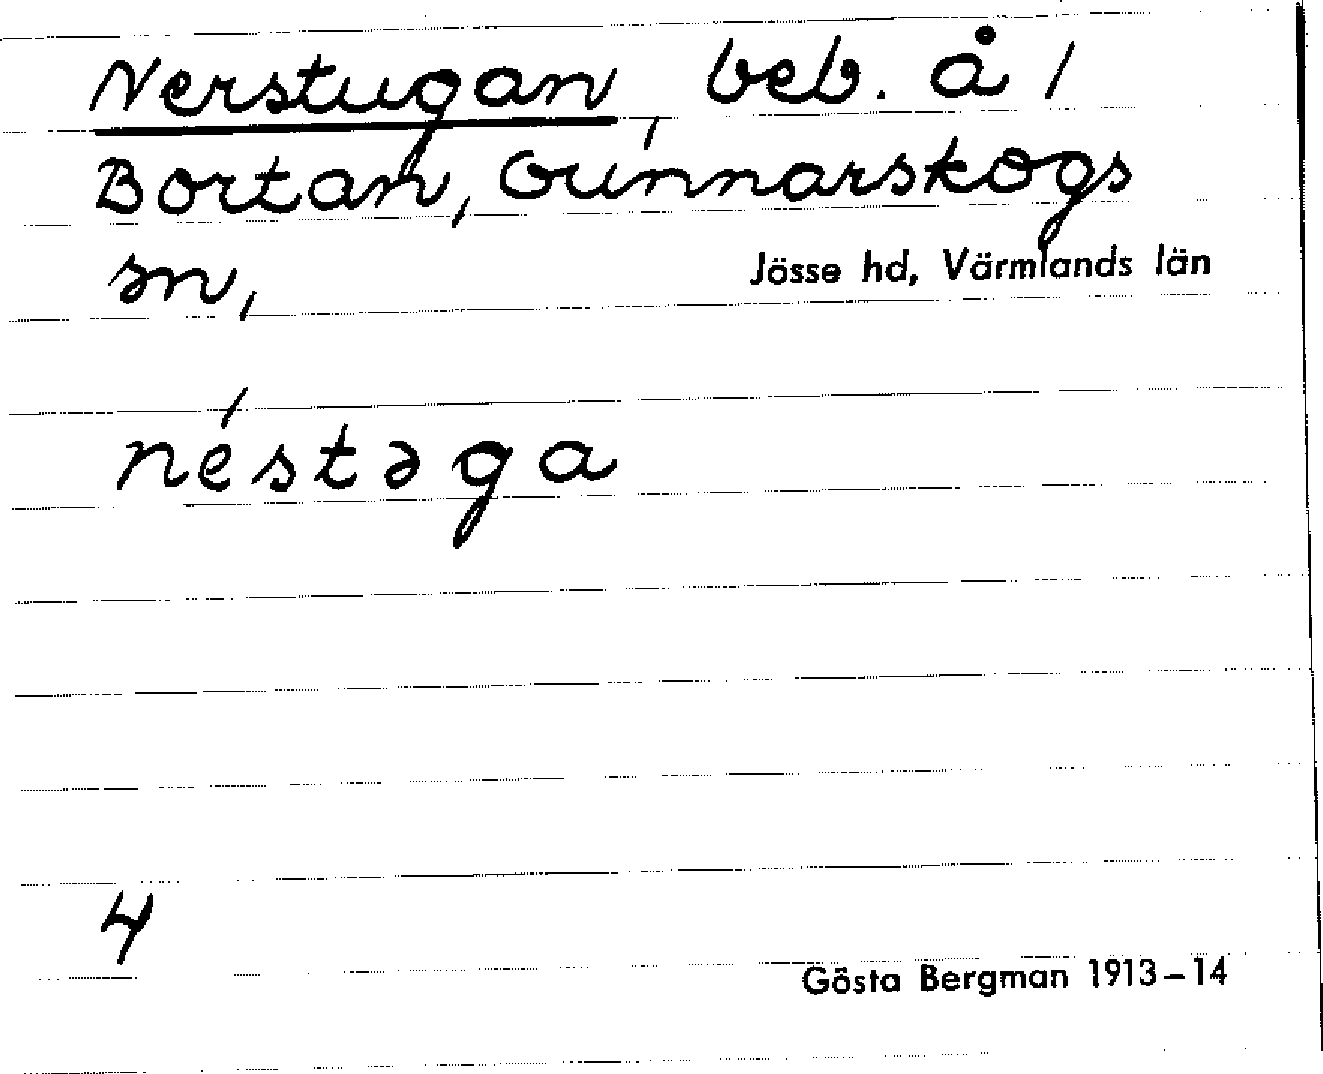 Nerstugan, beb. å 1
Bortan, Gunnarskogs
sn, Jösse hd, Värmlands län
néstəga
4
Gösta Bergman 1913-14